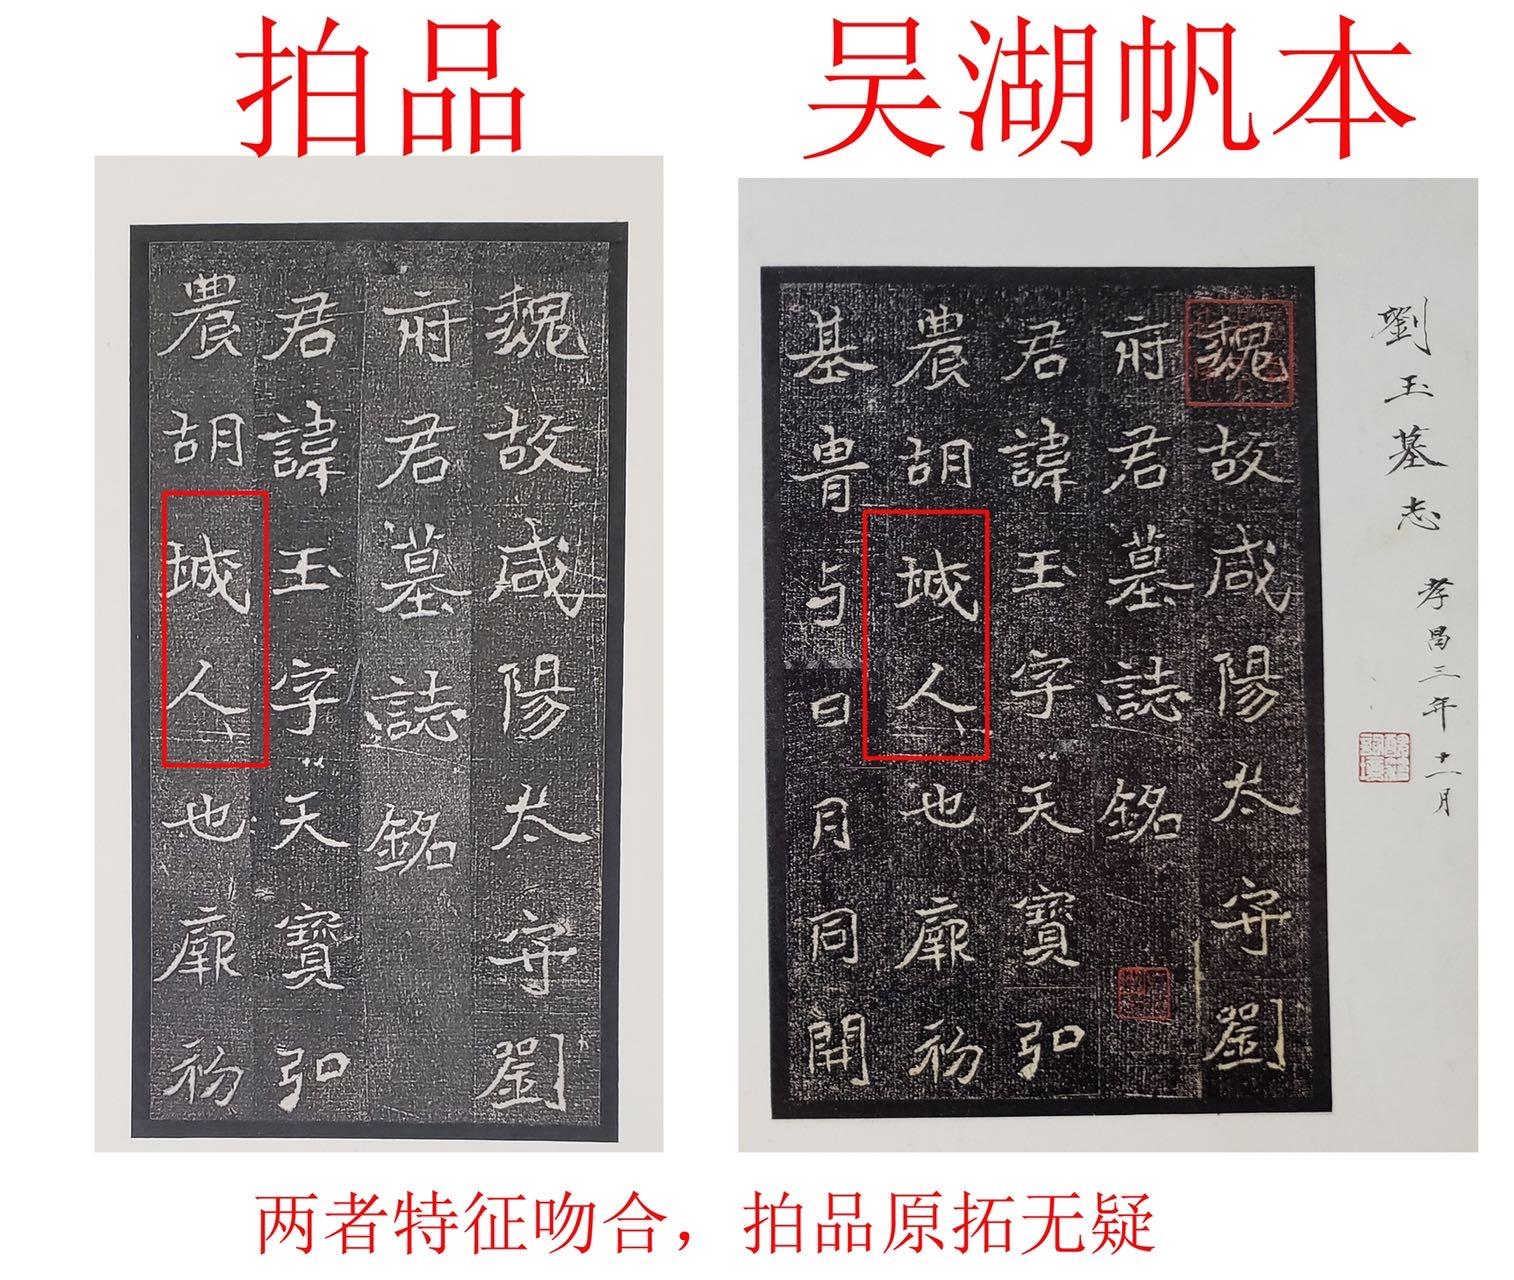 拍品
吴湖帆本
魏故咸陽太守劉
府君墓誌銘
君諱玉字天寶弘
農胡城人也廓初
劉玉墓志 孝昌三年十一月
魏故咸陽太守劉
府君墓誌銘
君諱玉字天寶弘
農胡城人也廓初
基胄与日月同開
两者特征吻合，拍品原拓无疑